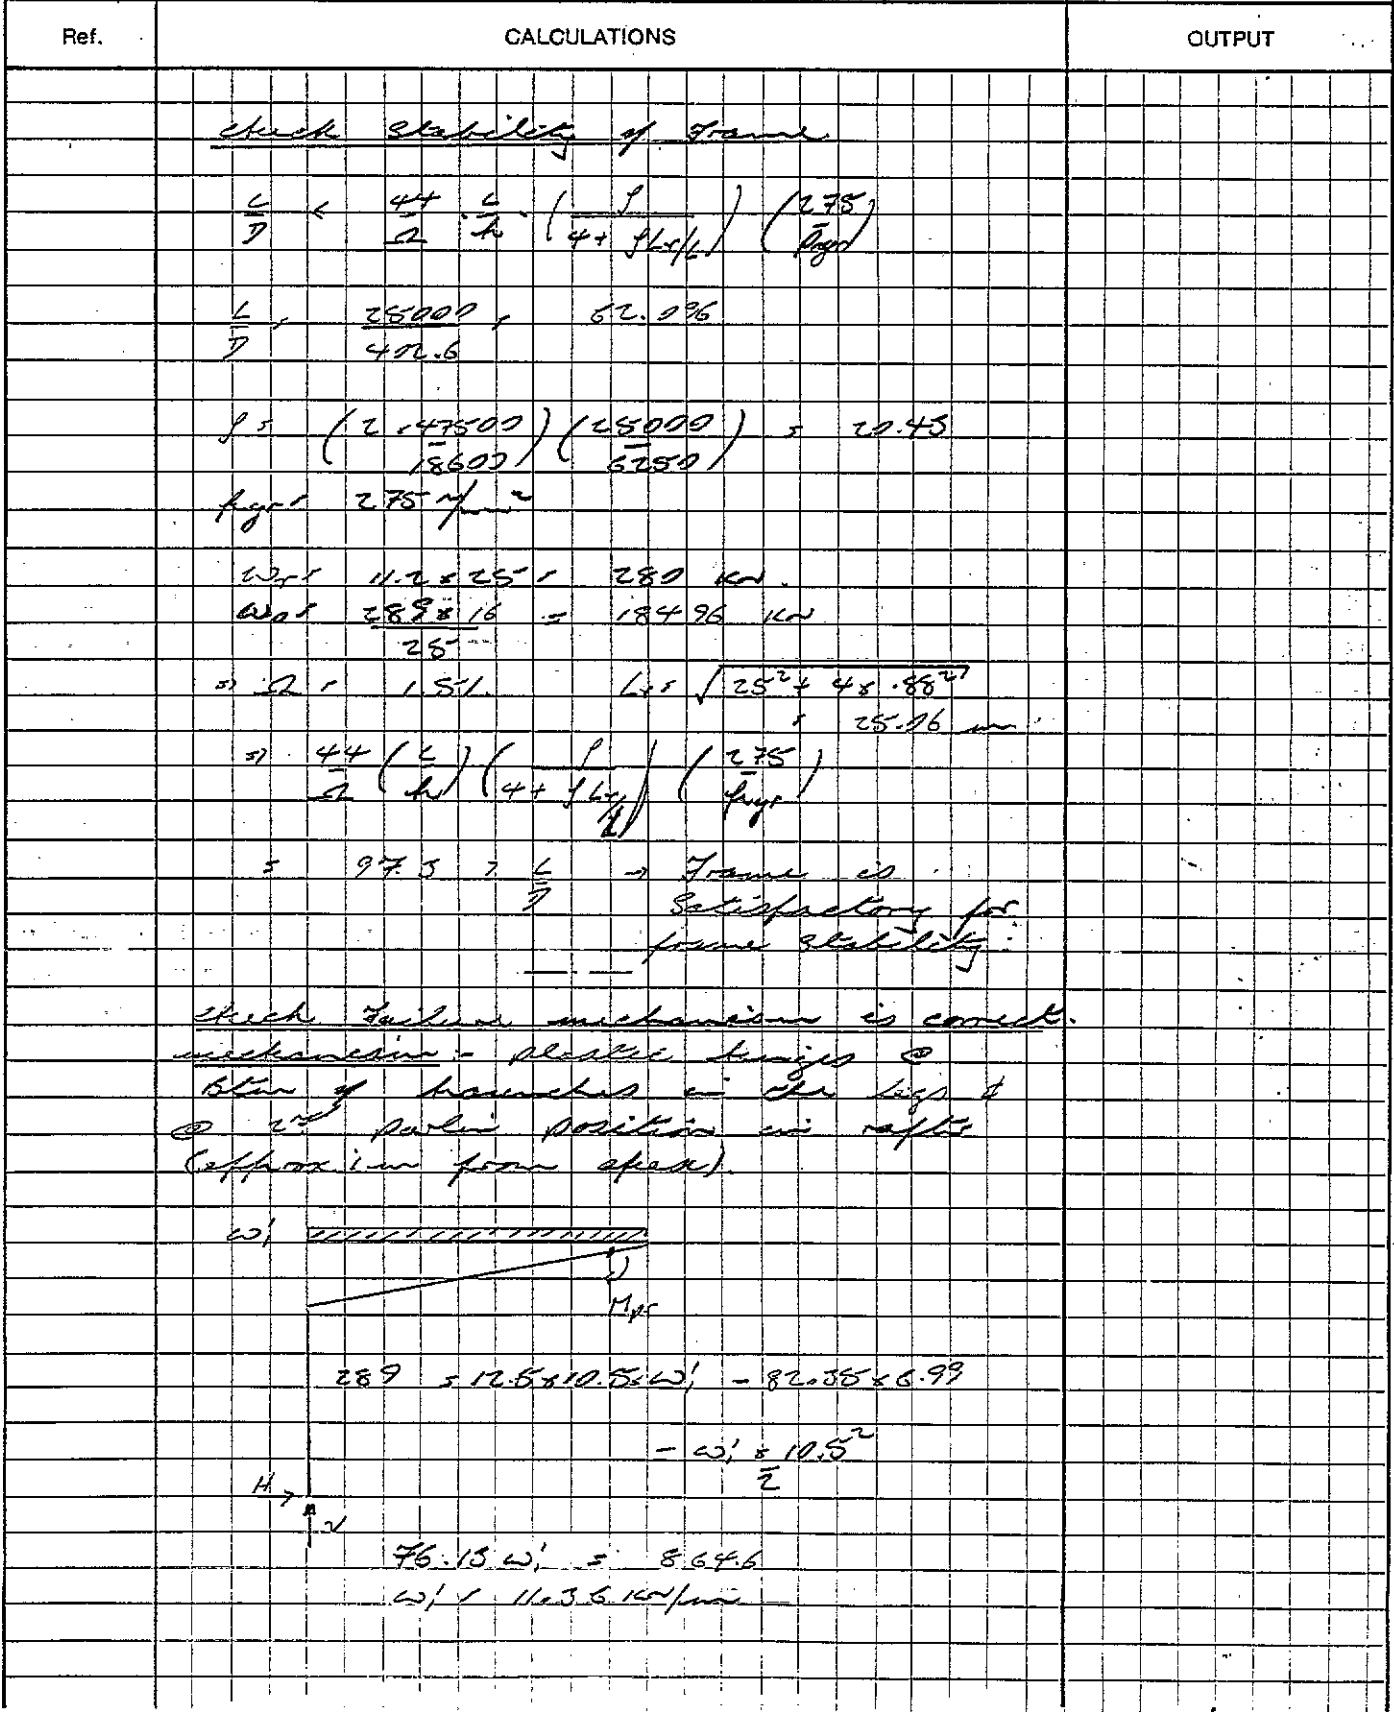 Ref. CALCULATIONS OUTPUT
Check Stability of Frame
L/D < 44/Ω · L/h · (ρ / (4 + ρLr/L)) (275/pyr)
L/D = 25000/402.6 = 62.096
ρ = (2 × 47500 / 18600) (25000/6250) = 20.43
pyr = 275 N/mm²
Wr = 11.2 × 25 = 280 kN.
Wo = 289 × 16 / 25 = 184.96 kN
⇒ Ω = 1.51. Lr = √(25² + 4 × .88²)
= 25.06 m
⇒ 44/Ω (L/h) (ρ / (4 + ρLr/L)) (275/pyr)
= 97.5 > L/D → Frame is
Satisfactory for
frame stability.
Check Failure mechanism is correct.
mechanism - plastic hinges @
Btm of haunches in the legs &
@ 2nd purlin position in rafter
(approx 1m from apex).
w'
Mpr
289 = 12.5 × 10.5 × w' - 82.35 × 6.99
- w' × 10.5²/2
H →
V
76.13 w' = 864.6
w' = 11.36 kN/m